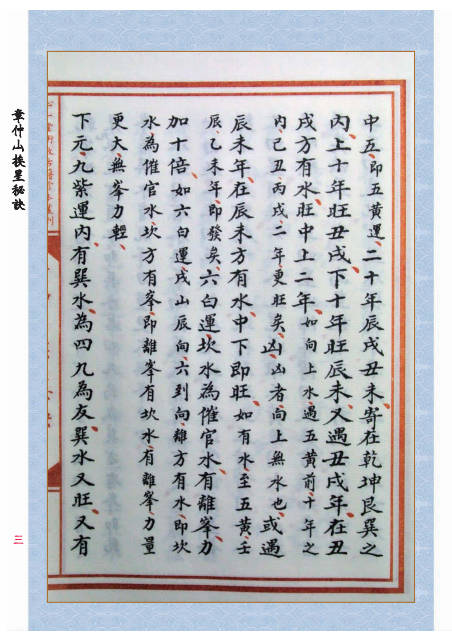 中五、即五黃運、二十年辰戌丑未寄在乾坤艮巽之
內、上十年旺丑戌、下十年旺辰未、又遇丑戌年在丑
戌方有水、旺中上二年、如向上水遇五黃前十年之
內、己丑、丙戌、二年更旺矣、凶、凶者向上無水也、或遇
辰未年在辰未方有水、中下即旺、如有水至五黃、壬
辰、乙未年即發矣、六白運坎水為催官水、有離峯、力
加十倍、如六白運戌山辰向、六到向、離方有水即坎
水為催官水、坎方有峯、即離峯有坎水有離峯、力量
更大、無峯力輕、
下元九紫運、內有巽水、為四九為友、巽水又旺、又有
章仲山挨星秘訣
三